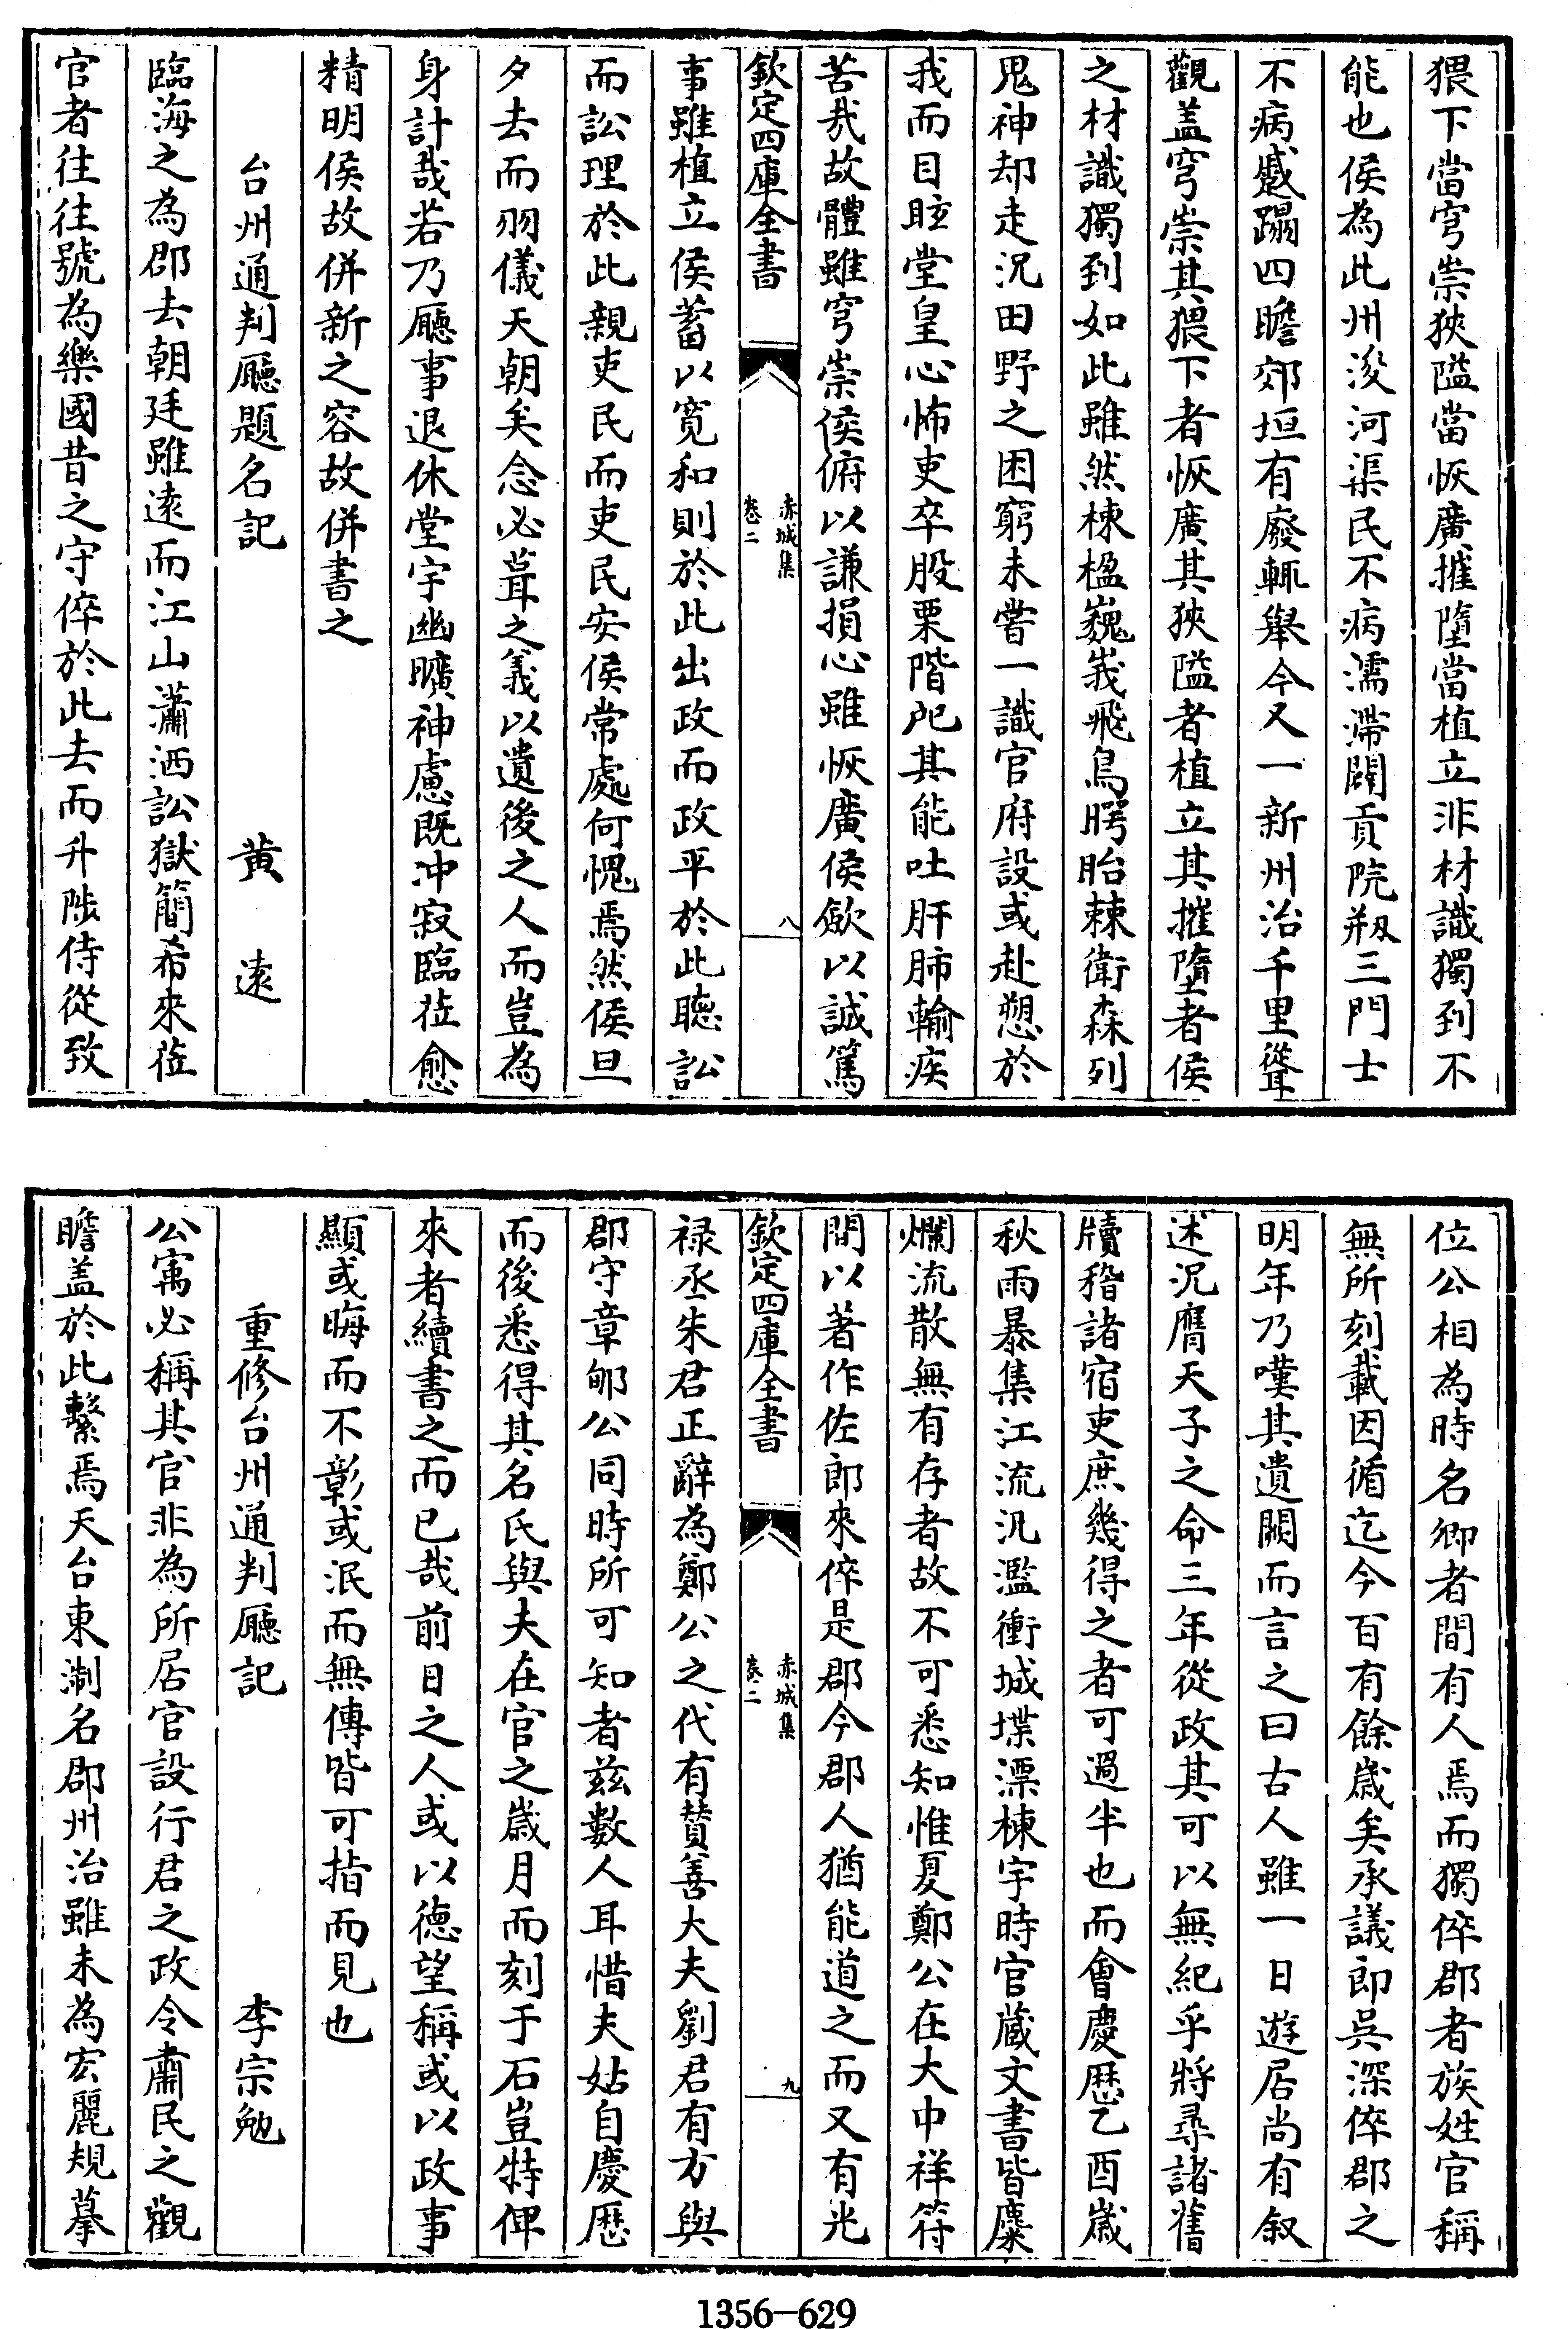 猥下當穹崇狹隘當恢廣摧墮當植立非材識獨到不
能也侯為此州浚河渠民不病濡滯闢貢院剏三門士
不病蹙蹋四瞻郊垣有廢輒舉今又一新州治千里聳
觀盖穹崇其猥下者恢廣其狹隘者植立其摧墮者侯
之材識獨到如此雖然棟楹巍峩飛鳥腭眙棘衛森列
鬼神却走況田野之困窮未嘗一識官府設或赴愬於
我而目眩堂皇心怖吏卒股栗階戺其能吐肝肺輸疾
苦哉故體雖穹崇侯俯以謙損心雖恢廣侯歛以誠篤
欽定四庫全書
赤城集
卷二
八
事雖植立侯蓄以寛和則於此出政而政平於此聴訟
而訟理於此親吏民而吏民安侯常處何愧焉然侯旦
夕去而羽儀天朝矣念必葺之義以遺後之人而豈為
身計哉若乃廳事退休堂宇幽曠神慮既冲寂臨莅愈
精明侯故併新之容故併書之
台州通判廳題名記
黄逺
臨海之為郡去朝廷雖逺而江山瀟洒訟獄簡希來莅
官者往往號為樂國昔之守倅於此去而升陟侍從致
位公相為時名卿者間有人焉而獨倅郡者族姓官稱
無所刻載因循迄今百有餘歳矣承議郎吳深倅郡之
明年乃嘆其遺闕而言之曰古人雖一日遊居尚有叙
述況膺天子之命三年從政其可以無紀乎將尋諸舊
牘稽諸宿吏庶幾得之者可過半也而會慶厯乙酉歳
秋雨暴集江流汎濫衝城堞漂棟宇時官蔵文書皆麋
爛流散無有存者故不可悉知惟夏鄭公在大中祥符
間以著作佐郎來倅是郡今郡人猶能道之而又有光
欽定四庫全書
赤城集
卷二
九
禄丞朱君正辭為鄭公之代有賛善大夫劉君有方與
郡守章郇公同時所可知者兹數人耳惜夫姑自慶厯
而後悉得其名氏與夫在官之歳月而刻于石豈特俾
來者續書之而已哉前日之人或以徳望稱或以政事
顯或晦而不彰或泯而無傳皆可指而見也
重修台州通判廳記
李宗勉
公寓必稱其官非為所居官設行君之政令肅民之觀
瞻盖於此繫焉天台東淛名郡州治雖未為宏麗規摹
1356-629